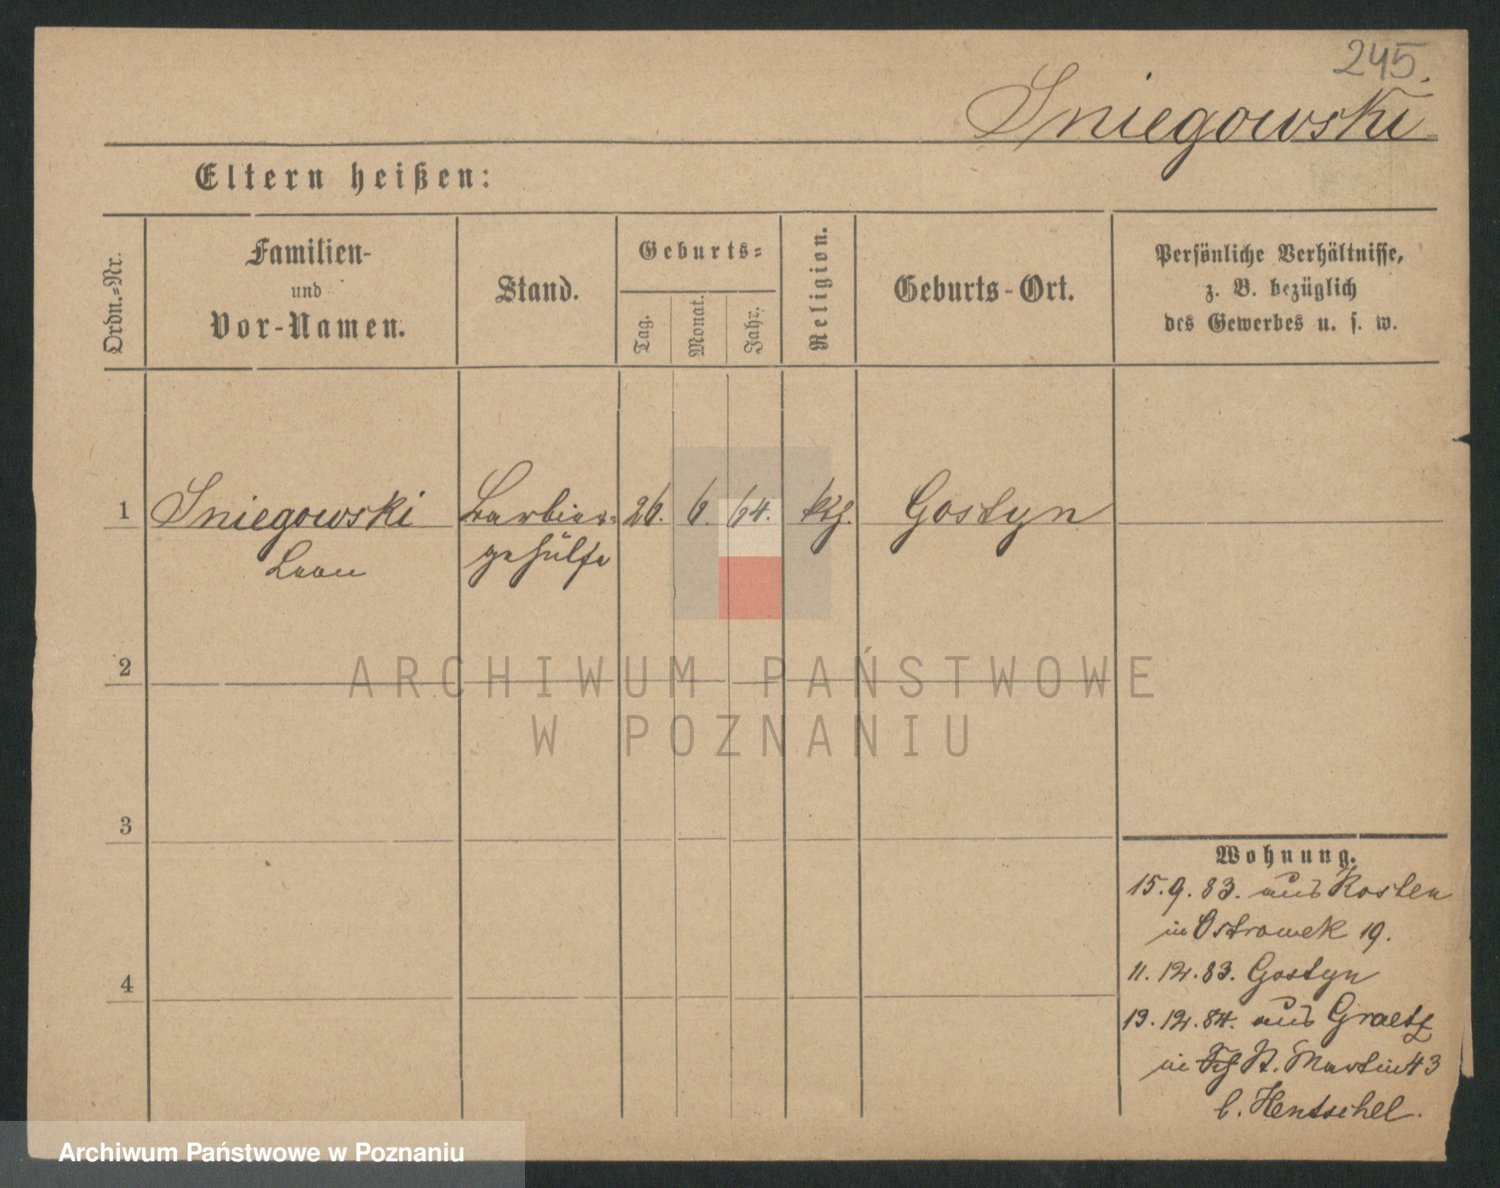 245.
Sniegowski
Eltern heißen:
Ordn.-Nr.
Familien-
und
Vor-Namen.
Stand.
Geburts-
Tag.
Monat.
Jahr.
Religion.
Geburts-Ort.
Persönliche Verhältnisse,
z. B. bezüglich
des Gewerbes u. s. w.
1
Sniegowski
Leon
Barbier-
gehülfe
26.
6.
64.
Gostyn
2
3
4
Wohnung.
15.9.83. aus Kosten
in Ostrowek 19.
11.12.83. Gostyn
19.12.84. aus Graetz
in St. Martin 43
b. Hentschel.
ARCHIWUM PAŃSTWOWE
W POZNANIU
Archiwum Państwowe w Poznaniu